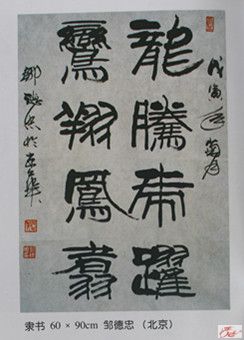 戊寅
龍騰虎躍
鸞翔鳳翥
鄒德忠於京華
隶书 60 × 90cm 邹德忠 （北京）